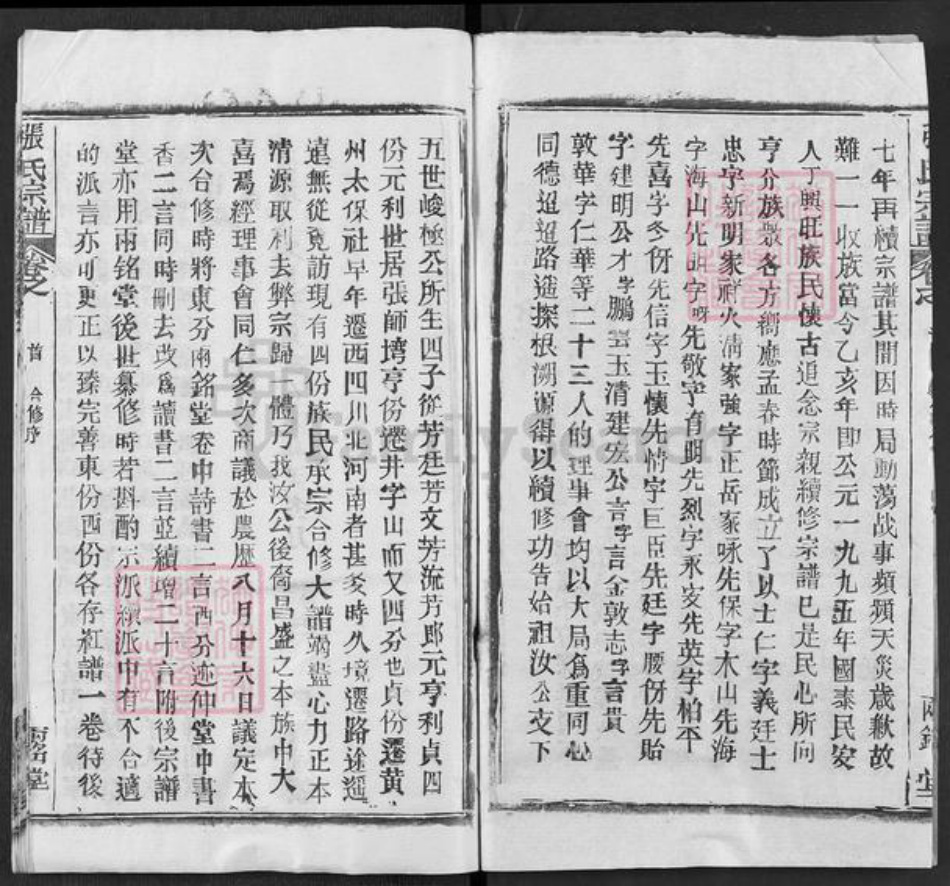 七年再續宗譜其間因時局動蕩战事頻頻天災歲歉故
難一一收族當今乙亥年即公元一九九五年國泰民安
人丁興旺族民懷古追念宗親續修宗譜已是民心所向
亨分族眾各方嚮應孟春時節成立了以士仁字義廷士
忠字新明家祥火清家強字正岳家咏先保字木山先海
字海山先 字 先敬字育明先烈字永安先英字柏平
先喜字冬份先信字玉懷先情字巨臣先廷字腰份先貽
字建明公才字鵬雲玉清建宏公言字言金敦志字言貴
敦華字仁華等二十三人的理事會均以大局為重同心
同德迢迢路遙探根溯源得以續修功告始祖汝公支下
五世峻極公所生四子從芳廷芳文芳流芳郎元亨利貞四
份元利世居張師塆亨份遷井字山而又四分也貞份遷黄
州太保社早年遷西四川北河南者甚多時久境遷路途遥
遠無從覓訪現有四份族民承宗合修大譜竭盡心力正本
清源取利去弊宗歸一體乃我汝公後裔昌盛之本族中大
喜焉經理事會同仁多次商議於農歷八月十六日議定本
次合修時將東分兩銘堂卷中詩書二言西分述仰堂中書
香二言同時刪去改為讀書二言並續增二十言附後宗譜
堂亦用兩銘堂後世纂修時若斟酌宗派續派中有不合適
的派言亦可更正以臻完善東份西份各存紅譜一卷待後
張氏宗譜
卷之
首
合修序
兩銘堂
FamilySearch